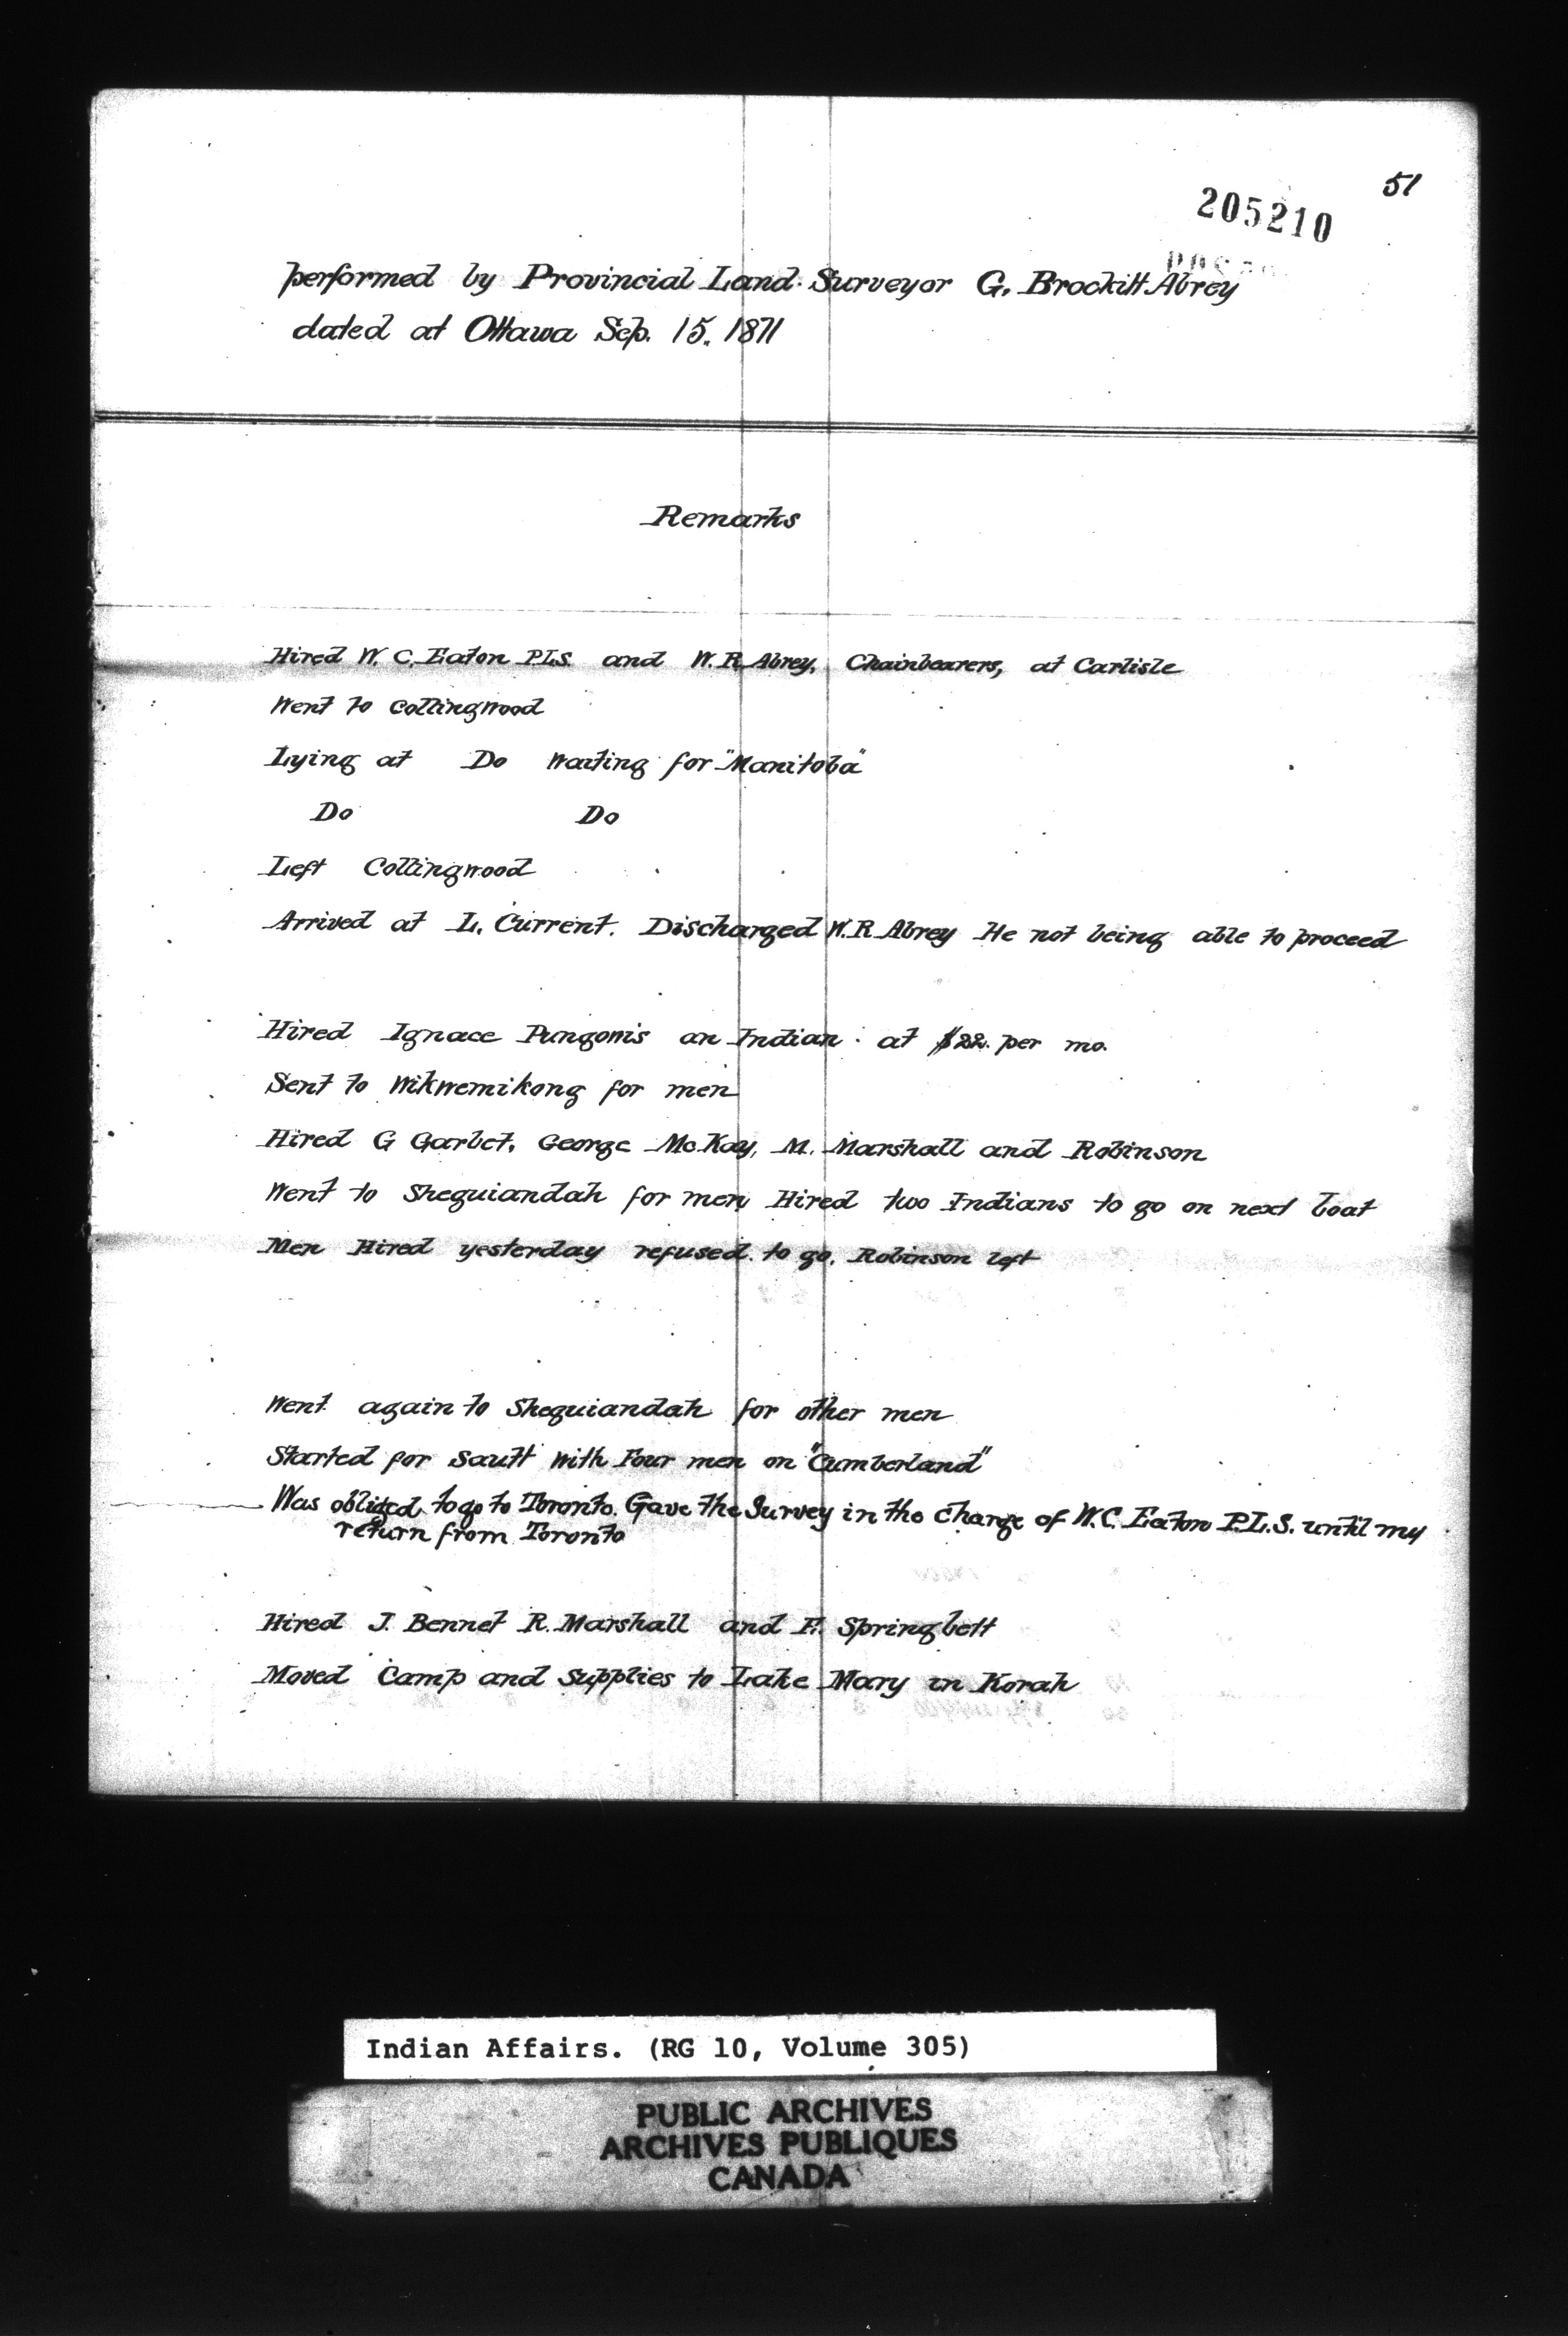 51
205210
performed by Provincial Land Surveyor G. Brockitt Abrey
dated at Ottawa Sep. 15. 1871
Remarks
Hired W. C. Eaton P.L.S. and W. R. Abrey, Chainbearers, at Carlisle
Went to Collingwood
Lying at Do Waiting for "Manitoba"
Do Do
Left Collingwood
Arrived at L. Current. Discharged W. R. Abrey He not being able to proceed
Hired Ignace Pungowis an Indian at $22. per mo.
Sent to Wikwemikong for men
Hired G Garbet, George McKay, M. Marshall and Robinson
Went to Sheguiandah for men Hired two Indians to go on next boat
Men Hired yesterday refused to go. Robinson left
Went again to Sheguiandah for other men
Started for Sault with Four men on "Cumberland"
Was obliged to go to Toronto. Gave the Survey in the charge of W. C. Eaton P.L.S. until my
return from Toronto
Hired J. Bennet R. Marshall and F. Springbett
Moved Camp and Supplies to Lake Mary in Korah
Indian Affairs. (RG 10, Volume 305)
PUBLIC ARCHIVES
ARCHIVES PUBLIQUES
CANADA